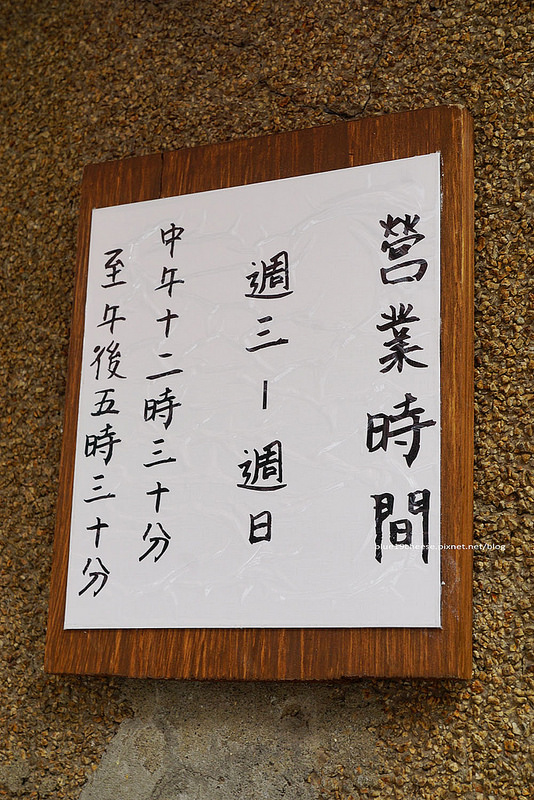 營業時間
週三－週日
中午十二時三十分
至午後五時三十分